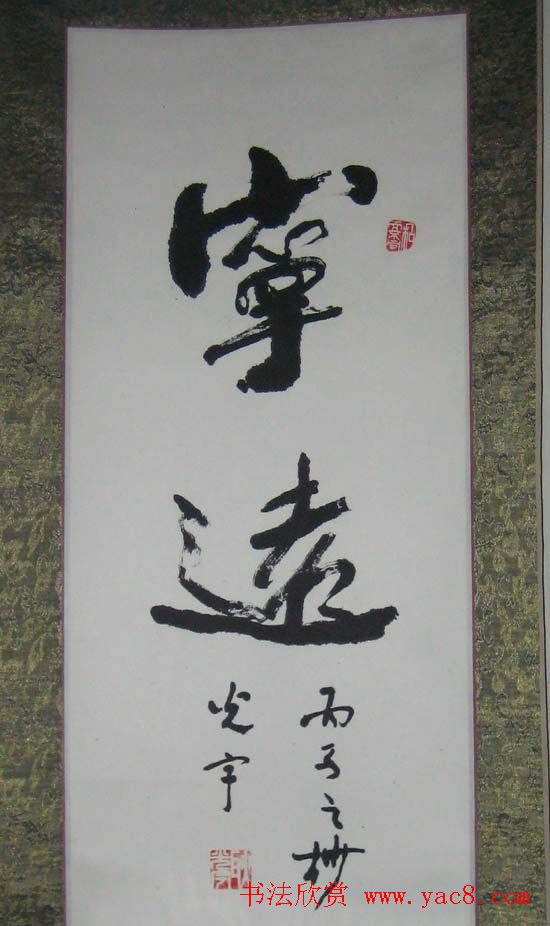 寧
遠
丙子之杪
光宇
书法欣赏 www.yac8.com